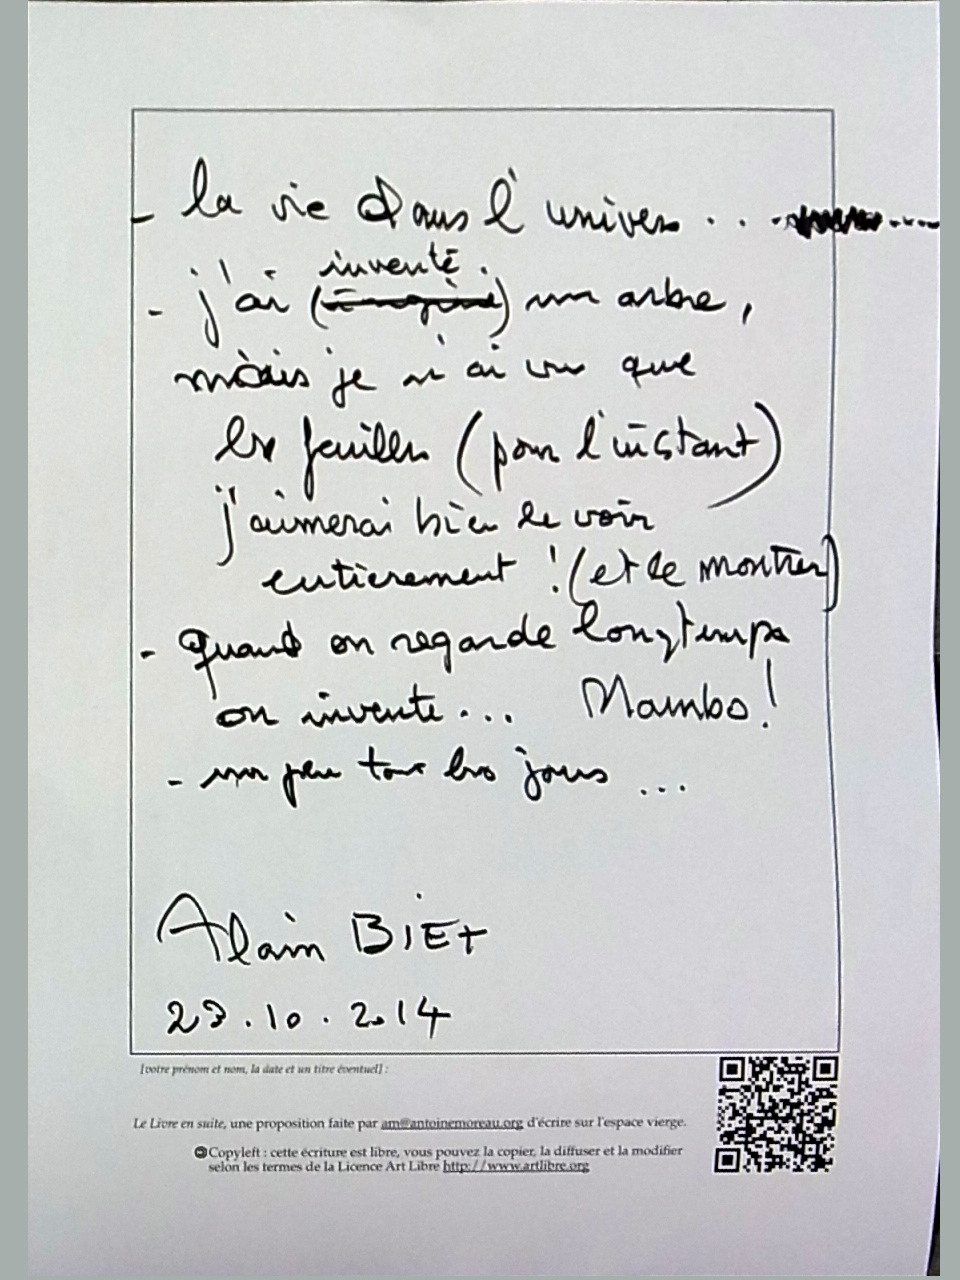 - la vie dans l'univers . . .
inventé.
- j'ai (imaginé) un arbre,
mais je n'ai vu que
les feuilles (pour l'instant)
j'aimerai bien le voir
entièrement ! (et le montrer)
- quand on regarde longtemps
on invente... Mambo!
- un peu tous les jours ...
Alain BIET
23.10.2014
[votre prénom et nom, la date et un titre éventuel] :
Le Livre en suite, une proposition faite par am@antoinemoreau.org d'écrire sur l'espace vierge.
Copyleft : cette écriture est libre, vous pouvez la copier, la diffuser et la modifier
selon les termes de la Licence Art Libre http://www.artlibre.org